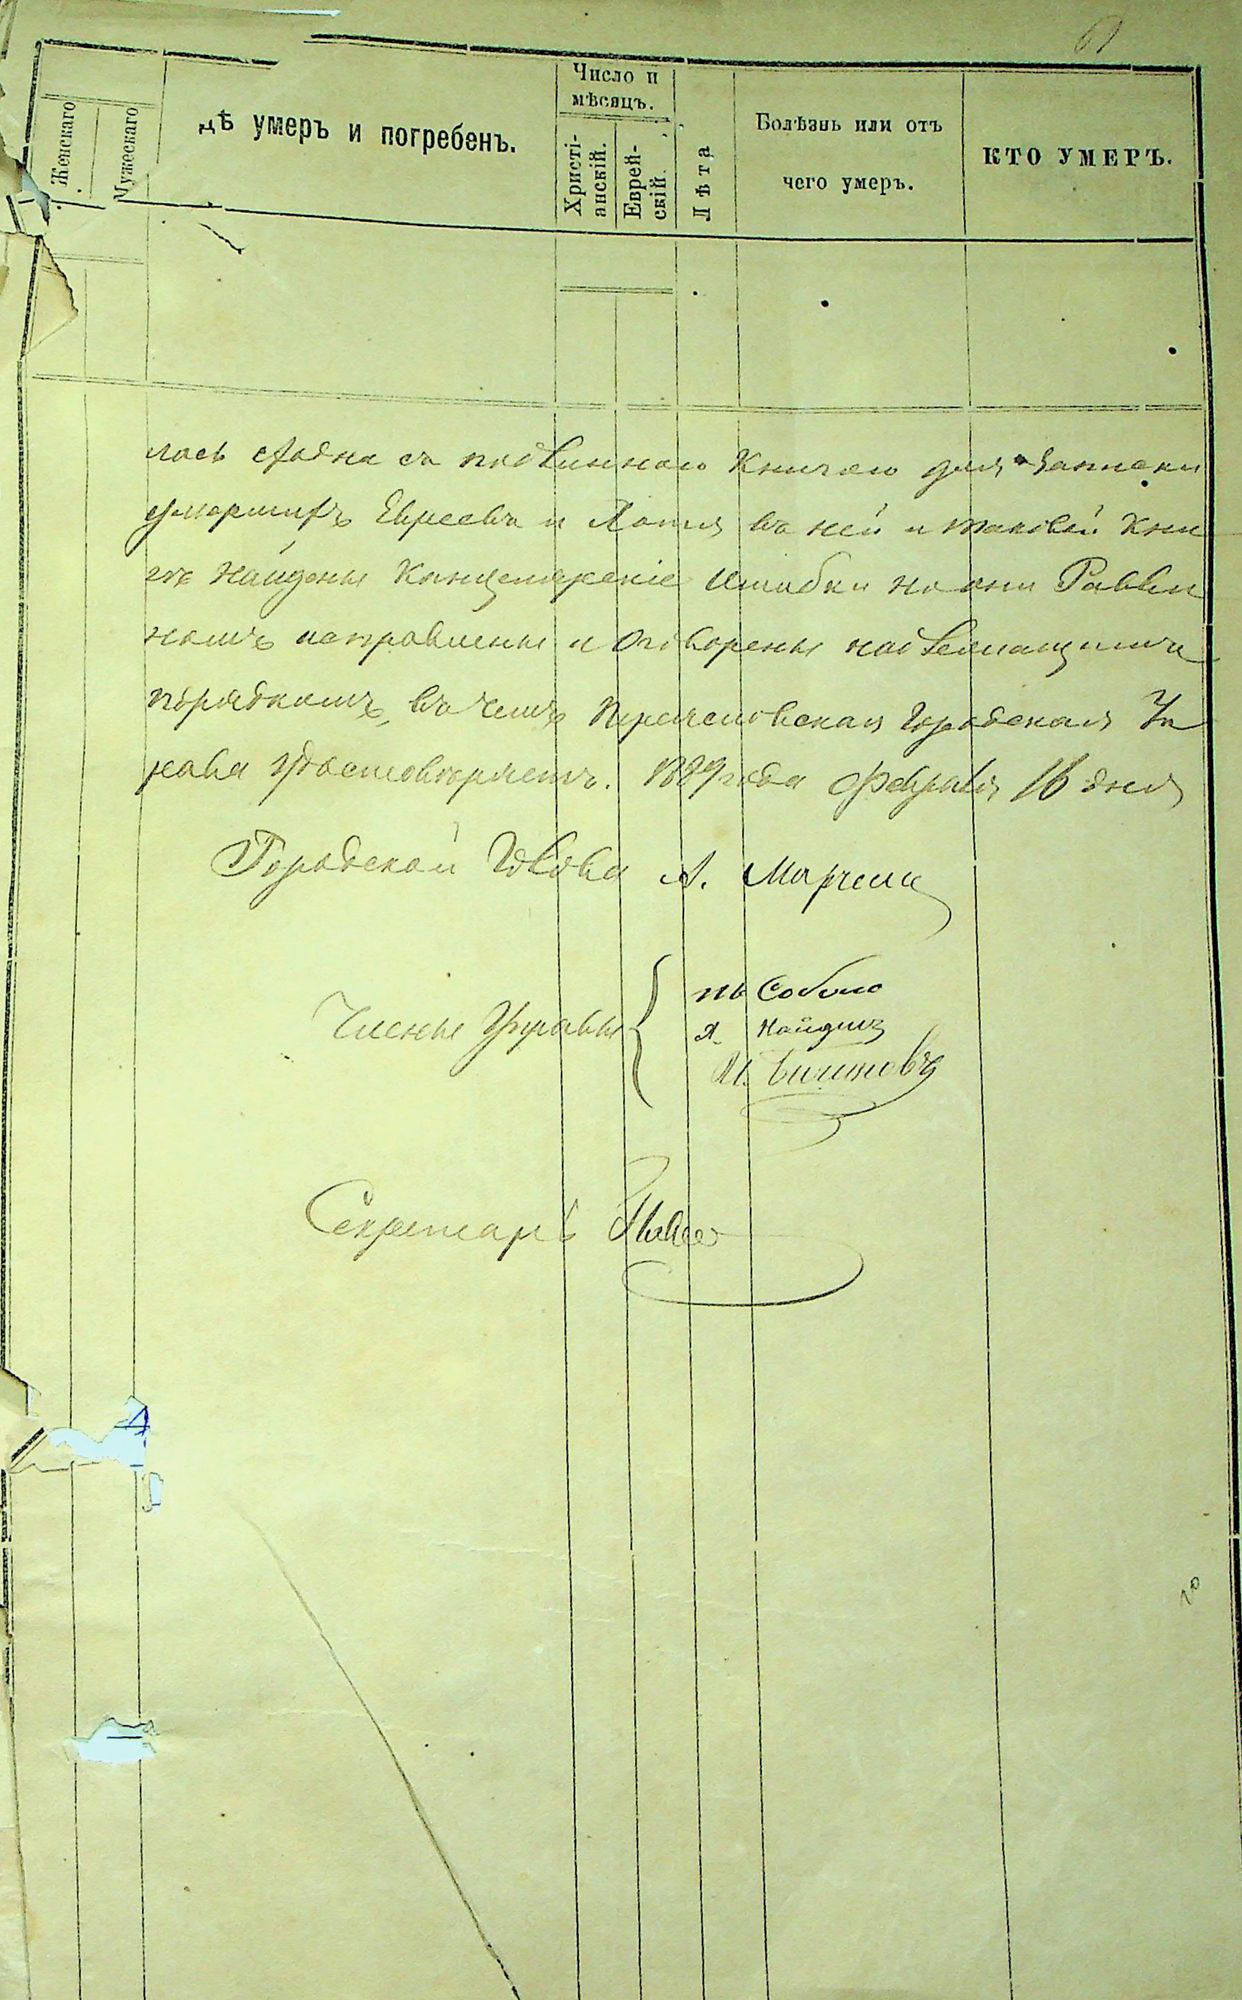 61
Женскаго
Мужескаго
дѣ умеръ и погребенъ.
Число и мѣсяцъ.
Христі-анскій.
Еврей-скій.
Лѣта
Болѣзнь или отъ
чего умеръ.
КТО УМЕРЪ.
лось сходна съ подлинною Книгою для Записки
умершихъ Евреевъ и Хотя въ ней и таковой Кни
гѣ Найдены Канцелярскіе Ошибки но они Равви
номъ исправлены и Оговорены надлежащимъ
порядкомъ, въ чемъ Переяславская Городская Уп
рава удостовѣряетъ. 1889 года Февраля 16 дня
Городской Голова А.
Члены Управы
Секретарь